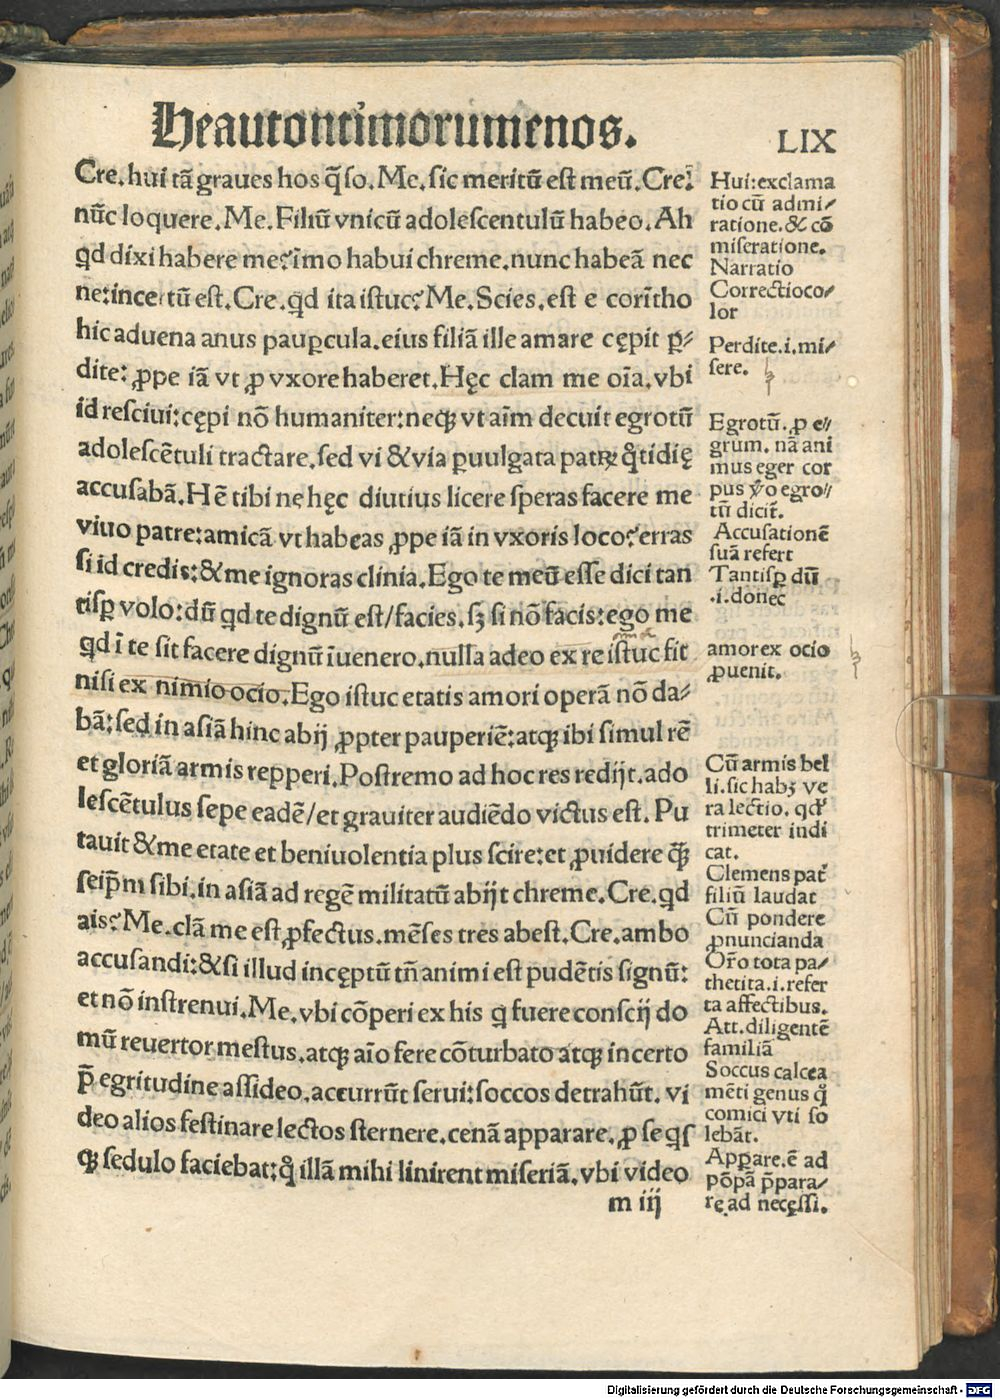 Heautontimorumenos.
LIX
Cre. hui tā graues hos q̄so. Me. sic meritū est meū. Cre.
nūc loquere. Me. Filiū vnicū adolescentulū habeo. Ah
qd dixi habere me? īmo habui chreme. nunc habeā nec
ne: incertū est. Cre. qd ita istuc? Me. Scies. est e corītho
hic aduena anus paupcula. eius filiā ille amare cępit p̱-
dite: ꝓpe iā vt ꝓ vxore haberet. Hęc clam me oīa. vbi
id resciui: cępi nō humaniter: neqꝫ vt aīm decuit egrotū
adolescētuli tractare. sed vi & via ꝑuulgata patꝝ q̊tidię
accusabā. Hē tibi ne hęc diutius licere speras facere me
viuo patre: amicā vt habeas ꝓpe iā in vxoris loco? erras
si id credis: & me ignoras clinia. Ego te meū esse dici tan
tisꝑ volo: dū qd te dignū est/ facies. sꝫ si nō facis: ego me
qd ī te sit facere dignū īuenero. nulla adeo ex re istuc fit
nisi ex nimio ocio. Ego istuc etatis amori operā nō da-
bā: sed in asiā hinc abij ꝓpter pauperiē: atqꝫ ibi simul rē
et gloriā armis repperi. Postremo ad hoc res redijt. ado
lescētulus sepe eadē/ et grauiter audiēdo victus est. Pu
tauit & me etate et beniuolentia plus scire: et ꝓuidere q̄ꝫ
seip̄m sibi. in asiā ad regē militatū abijt chreme. Cre. qd
ais? Me. clā me est ꝓfectus. mēses tres abest. Cre. ambo
accusandi: & si illud incęptū tn̄ animi est pudētis signū:
et nō instrenui. Me. vbi cōperi ex his q fuere conscij do
mū reuertor mestus. atqꝫ aīo fere cōturbato atqꝫ incerto
p̄ egritudine assideo. accurrūt serui: soccos detrahūt. vi
deo alios festinare lectos sternere. cenā apparare. ꝓ se qs
qꝫ sedulo faciebat: q̊ illā mihi linirent miseriā. vbi video
m iij
Hui: exclama
tio cū admi/
ratione. & cō
miseratione.
Narratio
Correctio co/
lor
Perdite. i. mi/
sere.
Egrotū. ꝓ e//
grum. nā ani
mus eger cor
pus v̊o egro//
tū dicit̄.
Accusationē
suā refert
Tantisꝑ dū
.i. donec
amor ex ocio
ꝓuenit.
Cū armis bel
li. sic habꝫ ve
ra lectio. qd'
trimeter indi
cat.
Clemens pat̄
filiū laudat
Cū pondere
ꝓnuncianda
Or̄o tota pa/
thetita. i. refer
ta affectibus.
Att. diligentē
familiā
Soccus calcea
mēti genus q̊
comici vti so
lebāt.
Appare. ē ad
pōpā p̄para/
rę ad necęssi.
Digitalisierung gefördert durch die Deutsche Forschungsgemeinschaft - DFG